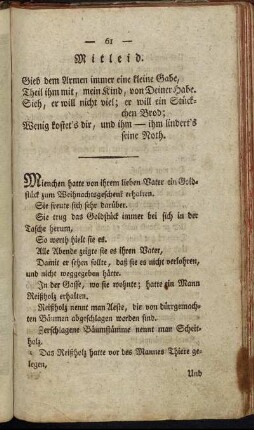 — 61 —
Mitleid.
Gieb dem Armen immer eine kleine Gabe,
Theil ihm mit, mein Kind, von Deiner Habe.
Sieh, er will nicht viel; er will ein Stück-
chen Brod;
Wenig kostet's dir, und ihm — ihm lindert's
seine Noth.
Mienchen hatte von ihrem lieben Vater ein Gold-
stück zum Weihnachtsgeschenk erhalten.
Sie freute sich sehr darüber.
Sie trug das Goldstück immer bei sich in der
Tasche herum,
So werth hielt sie es.
Alle Abende zeigte sie es ihrem Vater,
Damit er sehen sollte, daß sie es nicht verlohren,
und nicht weggegeben hätte.
In der Gasse, wo sie wohnte; hatte ein Mann
Reißholz erhalten.
Reißholz nennt man Aeste, die von dürrgemach-
ten Bäumen abgeschlagen worden sind.
Zerschlagene Baumstämme nennt man Scheit-
holz.
Das Reißholz hatte vor des Mannes Thüre ge-
legen,
Und